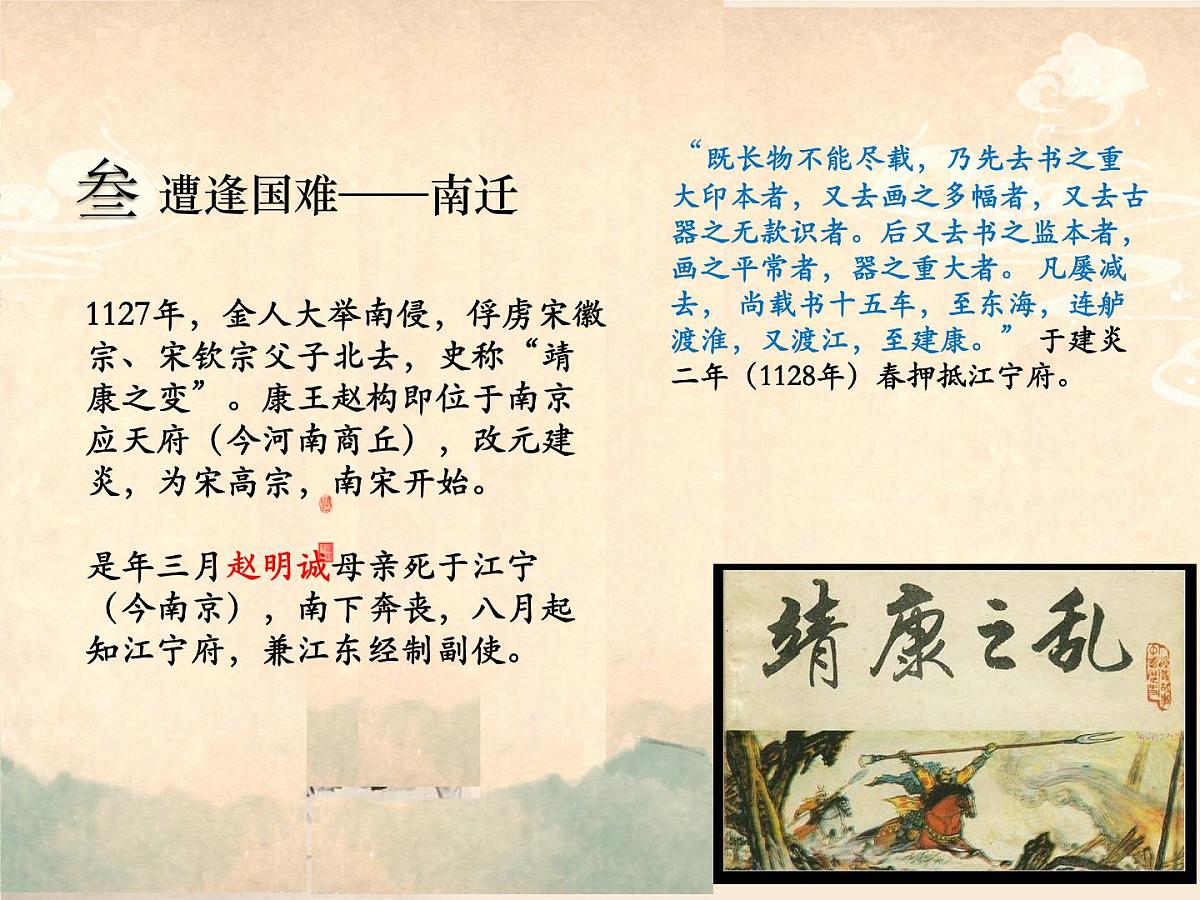 叁 遭逢国难——南迁
1127年，金人大举南侵，俘虏宋徽
宗、宋钦宗父子北去，史称“靖
康之变”。康王赵构即位于南京
应天府（今河南商丘），改元建
炎，为宋高宗，南宋开始。
是年三月赵明诚母亲死于江宁
（今南京），南下奔丧，八月起
知江宁府，兼江东经制副使。
“既长物不能尽载，乃先去书之重
大印本者，又去画之多幅者，又去古
器之无款识者。后又去书之监本者，
画之平常者，器之重大者。 凡屡减
去， 尚载书十五车，至东海，连舻
渡淮，又渡江，至建康。” 于建炎
二年（1128年）春押抵江宁府。
靖康之乱